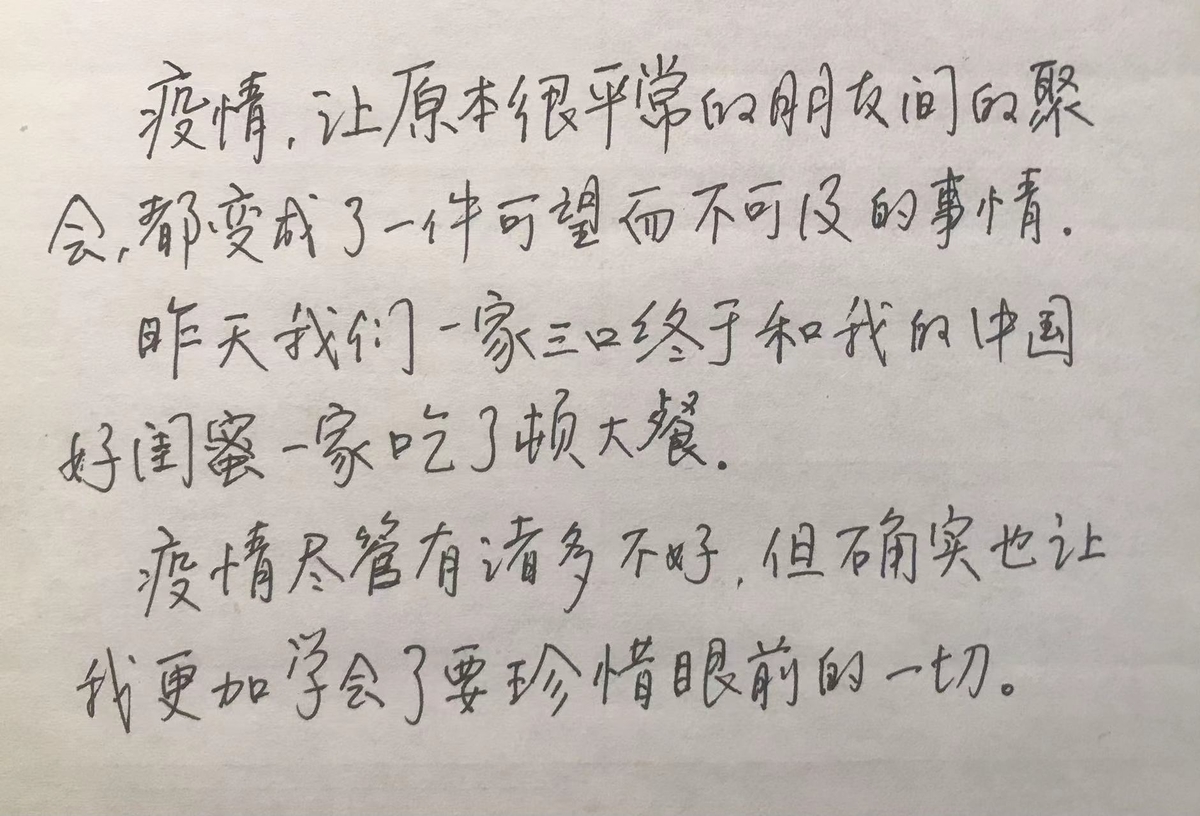 疫情，让原本很平常的朋友间的聚
会，都变成了一件可望而不可及的事情.
昨天我们一家三口终于和我的中国
好闺蜜一家吃了顿大餐.
疫情尽管有诸多不好，但确实也让
我更加学会了要珍惜眼前的一切。